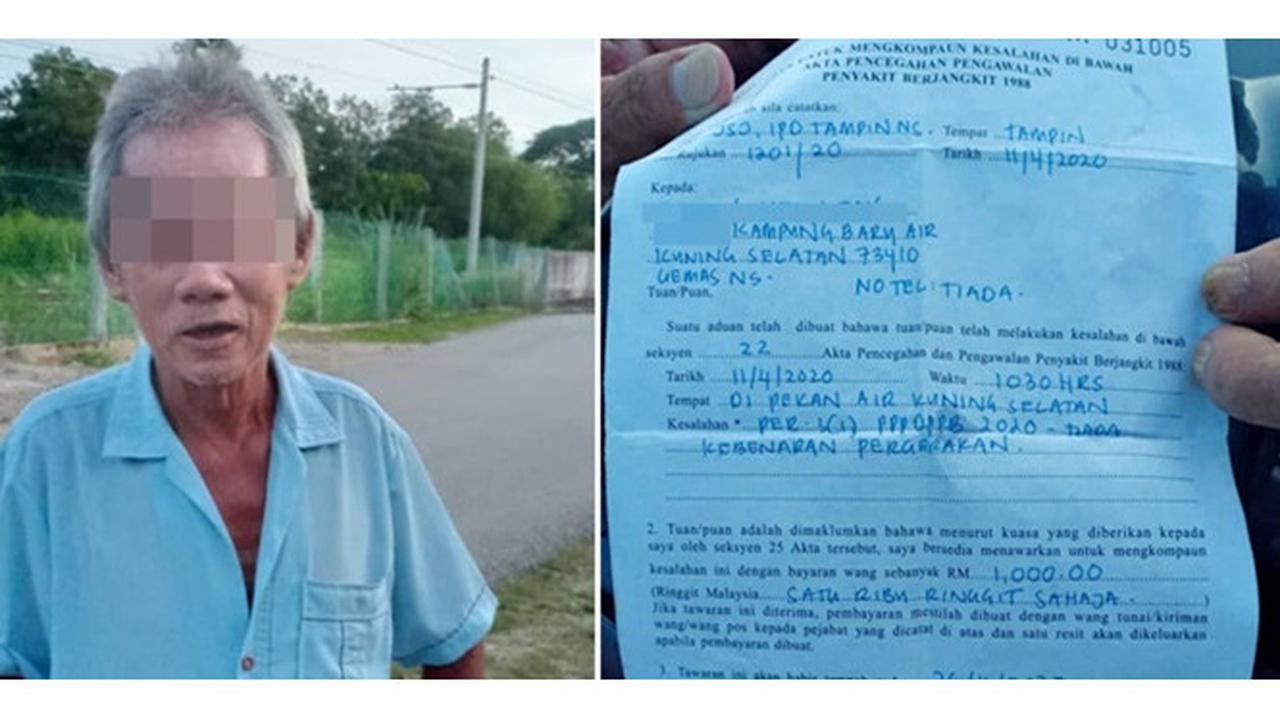 031005
UNTUK MENGKOMPAUN KESALAHAN DI BAWAH
AKTA PENCEGAHAN PENGAWALAN
PENYAKIT BERJANGKIT 1988
sila catatkan:
OSO, IPD TAMPIN NS. Tempat TAMPIN
Rujukan 1201/20 Tarikh 11/4/2020
Kepada:
KAMPUNG BARU AIR
KUNING SELATAN 73410
GEMAS NS.
Tuan/Puan, NO TEL: TIADA.
Suatu aduan telah dibuat bahawa tuan/puan telah melakukan kesalahan di bawah
seksyen 22 Akta Pencegahan dan Pengawalan Penyakit Berjangkit 1988.
Tarikh 11/4/2020 Waktu 1030 HRS
Tempat DI PEKAN AIR KUNING SELATAN
Kesalahan * PER. 3(1) 2020 - TIADA
KEBENARAN PERGERAKAN.
2. Tuan/puan adalah dimaklumkan bahawa menurut kuasa yang diberikan kepada
saya oleh seksyen 25 Akta tersebut, saya bersedia menawarkan untuk mengkompaun
kesalahan ini dengan bayaran wang sebanyak RM 1,000.00
(Ringgit Malaysia SATU RIBU RINGGIT SAHAJA. )
Jika tawaran ini diterima, pembayaran mestilah dibuat dengan wang tunai/kiriman
wang/wang pos kepada pejabat yang dicatat di atas dan satu resit akan dikeluarkan
apabila pembayaran dibuat.
3. Tawaran ini akan habis